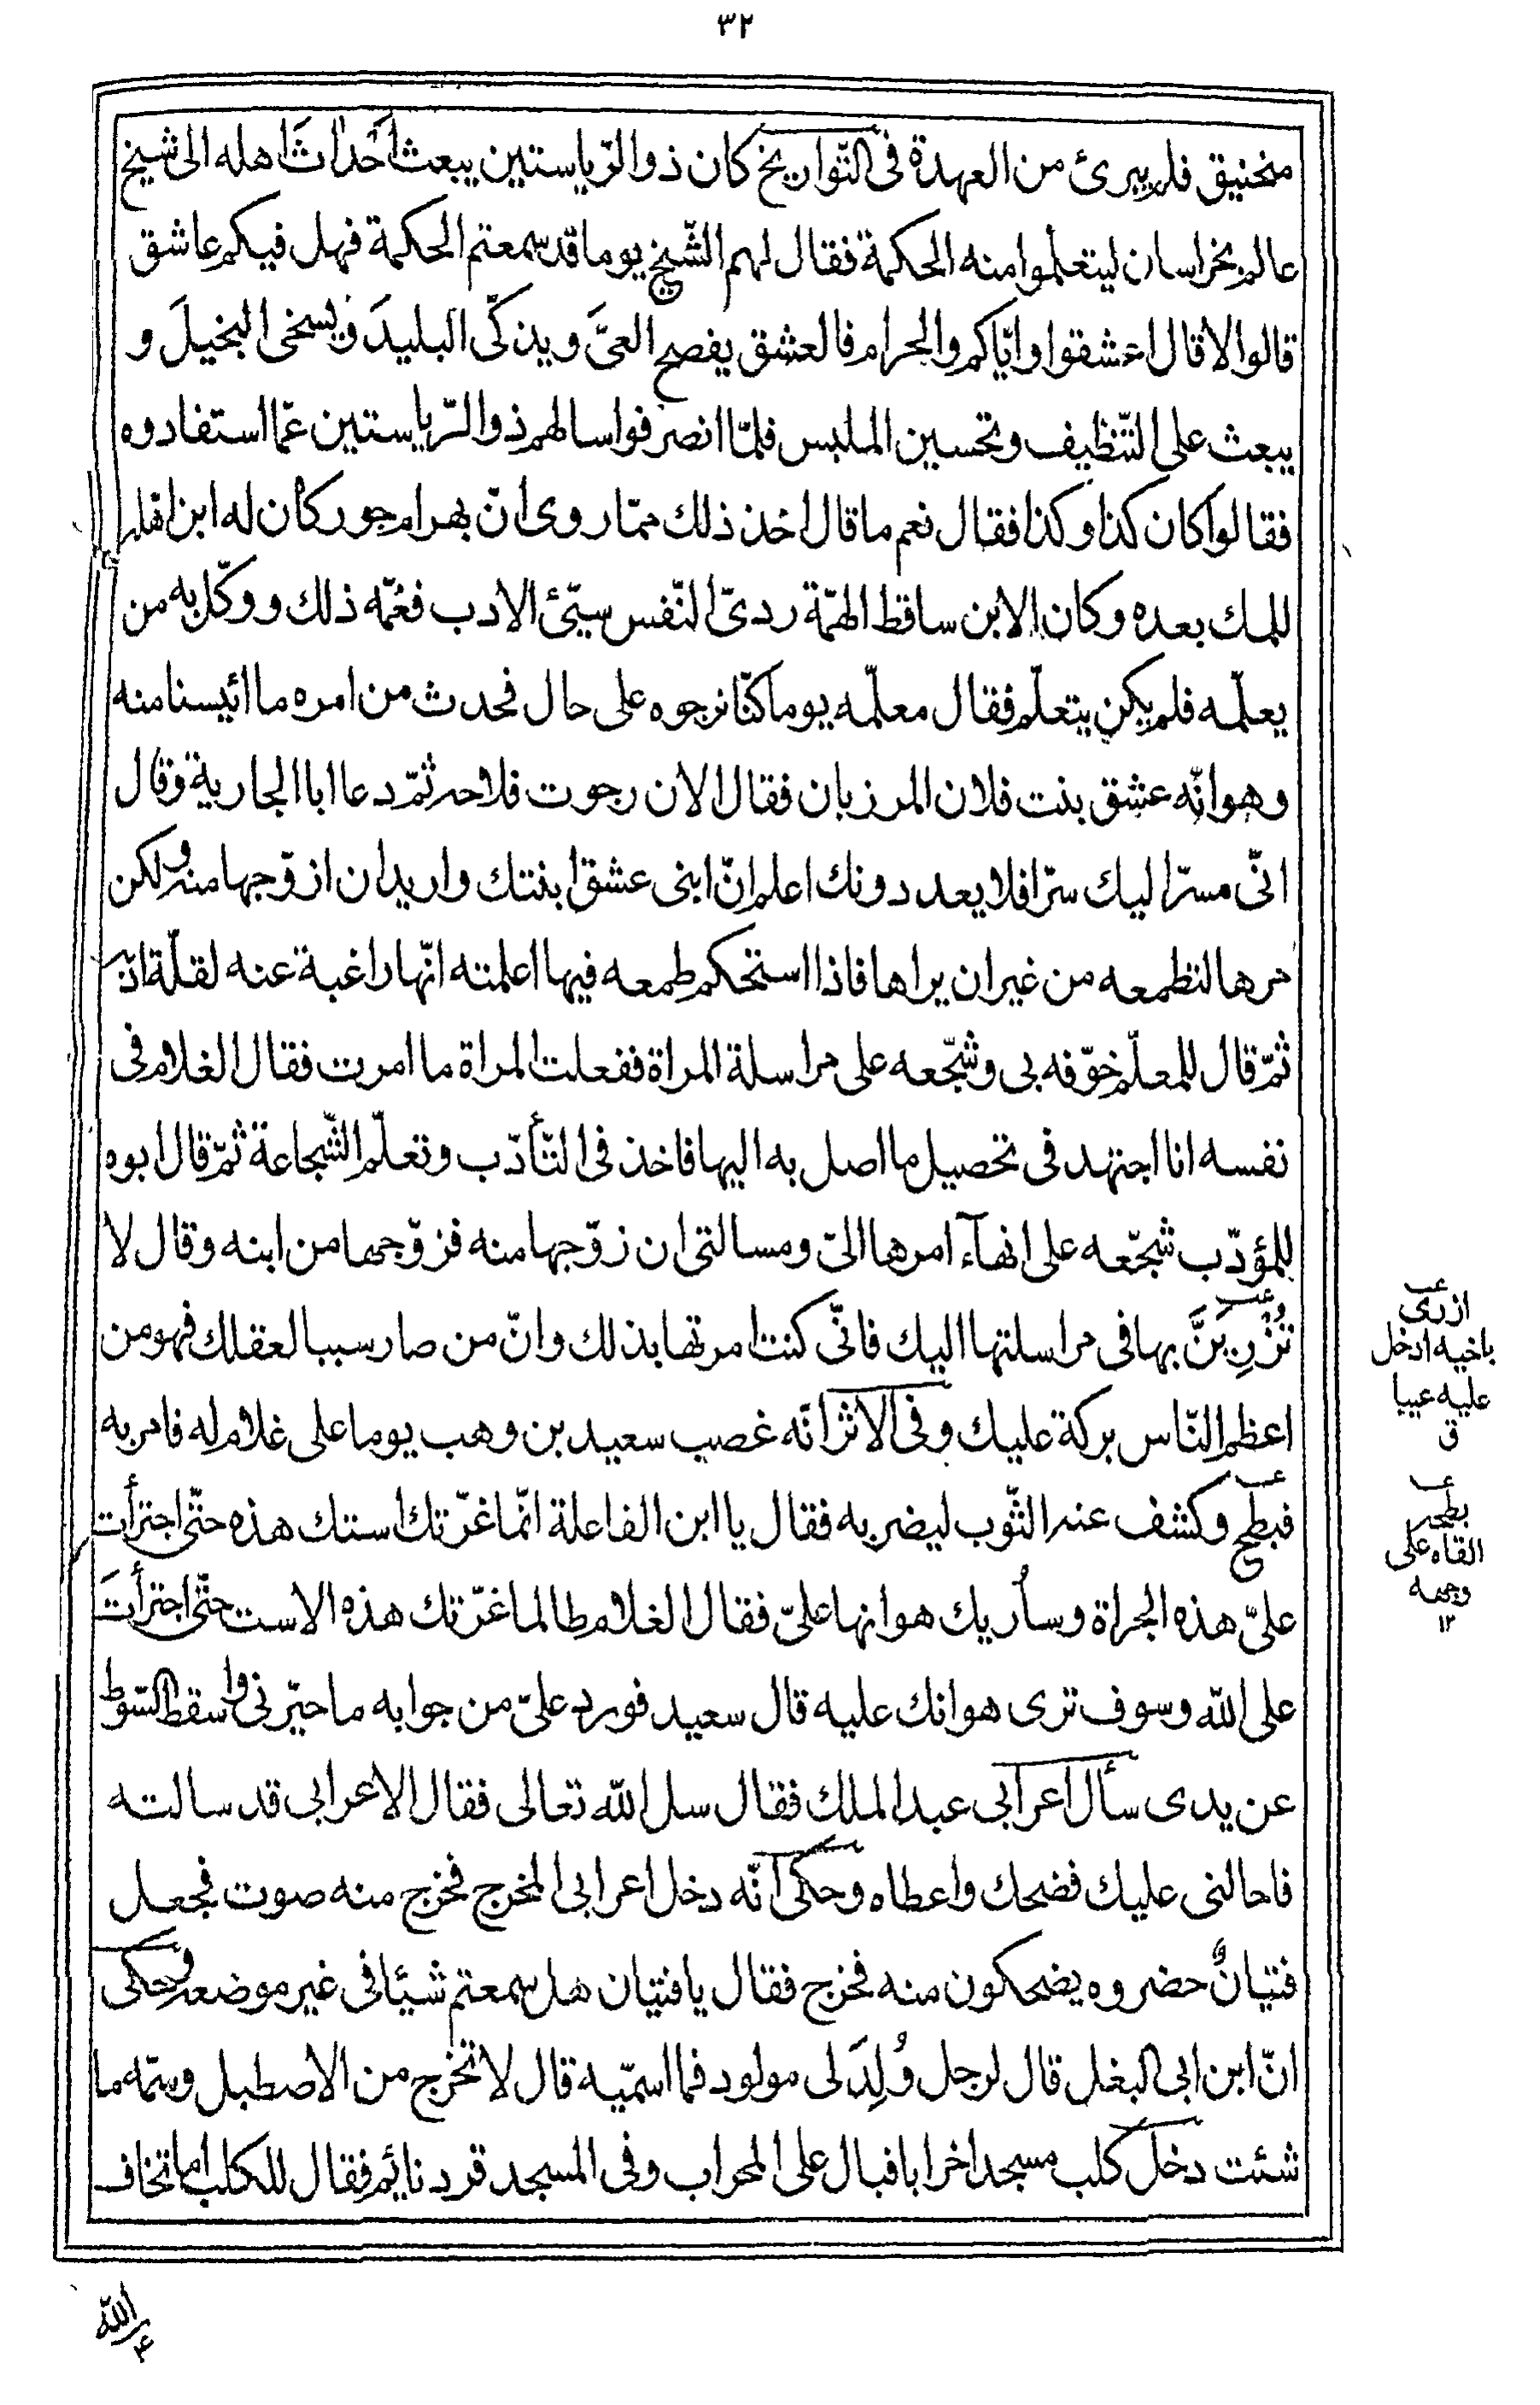 ٣٢
منجنيق فلم يبرئ من العهدة فى التّواريخ كان ذو الرّياستين يبعث أَحْداثَ اهله الى شيخ
عالم بخراسان ليتعلّموا منه الحكمة فقال لهم الشّيخ يوما قد سمعتم الحكمة فهل فيكم عاشق
قالوا لا قال اعشقوا وايّاكم والحرام فالعشق يفصح العىَّ ويذكّى البليدَ ويسخى البخيلَ و
يبعث على التّنظيف وتحسين الملبس فلمّا انصرفوا سالهم ذو الرّياستين عمّا استفادوه
فقالوا كان كذا وكذا فقال نعم ما قال اخذ ذلك ممّا روى انّ بهرام جور كان له ابن اهله
للملك بعده وكان الابن ساقط الهمّة ردىّ النّفس سيّئ الادب فغمّه ذلك ووكّل به من
يعلّمه فلم يكن يتعلّم فقال معلّمه يوما كنّا نرجوه على حال فحدث من امره ما ائيسنا منه
وهو انّه عشق بنت فلان المرزبان فقال الان رجوت فلاحه ثمّ دعا ابا الجارية وقال
انّى مسرّ اليك سرّا فلا يعد دونك اعلم انّ ابنى عشق ابنتك واريد ان ازوّجها منه ولكن
مرها لتطمعه من غير ان يراها فاذا استحكم طمعه فيها اعلمته انّها راغبة عنه لقلّة ادبه
ثمّ قال للمعلّم خوّفه بى وشجّعه على مراسلة المراة ففعلت المراة ما امرت فقال الغلام فى
نفسه انا اجتهد فى تحصيل ما اصل به اليها فاخذ فى التّأدّب وتعلّم الشّجاعة ثمّ قال ابوه
للمؤدّب شجّعه على انهآء امرها الىّ ومسالتى ان زوّجها منه فزوّجها من ابنه وقال لا
تُزْرِيَنَّ بها فى مراسلتها اليك فانّى كنت امرتها بذلك وانّ من صار سببا لعقلك فهو من
اعظم النّاس بركة عليك وفى الاثر انّه غصب سعيد بن وهب يوما على غلام له فامر به
فبطح وكشف عنه الثّوب ليضربه فقال يا ابن الفاعلة انّما غرّتك استك هذه حتّى اجترأت
علىّ هذه الجراة وسأريك هوانها علىّ فقال الغلام طالما غرّتك هذه الاست حتّى اجترأتَ
على الله وسوف ترى هوانك عليه قال سعيد فورد علىّ من جوابه ما حيّرنى واسقط السّوط
عن يدى سأل اعرابى عبد الملك فقال سل الله تعالى فقال الاعرابى قد سالته
فاحالنى عليك فضحك واعطاه وحكى انّه دخل اعرابى المخرج فخرج منه صوت فجعل
فتيانٌ حضروه يضحكون منه فخرج فقال يا فتيان هل سمعتم شيئا فى غير موضعه وحكى
انّ ابن ابى البغل قال لرجل وُلِدَ لى مولود فما اسمّيه قال لا تخرج من الاصطبل وسمّه ما
شئت دخل كلب مسجدا خرابا فبال على المحراب وفى المسجد قرد نائم فقال للكلب اما تخاف
الله
ازرى
باخيه ادخل
عليه عيبا
ق
بطحه
القاه على
وجهه
١٢